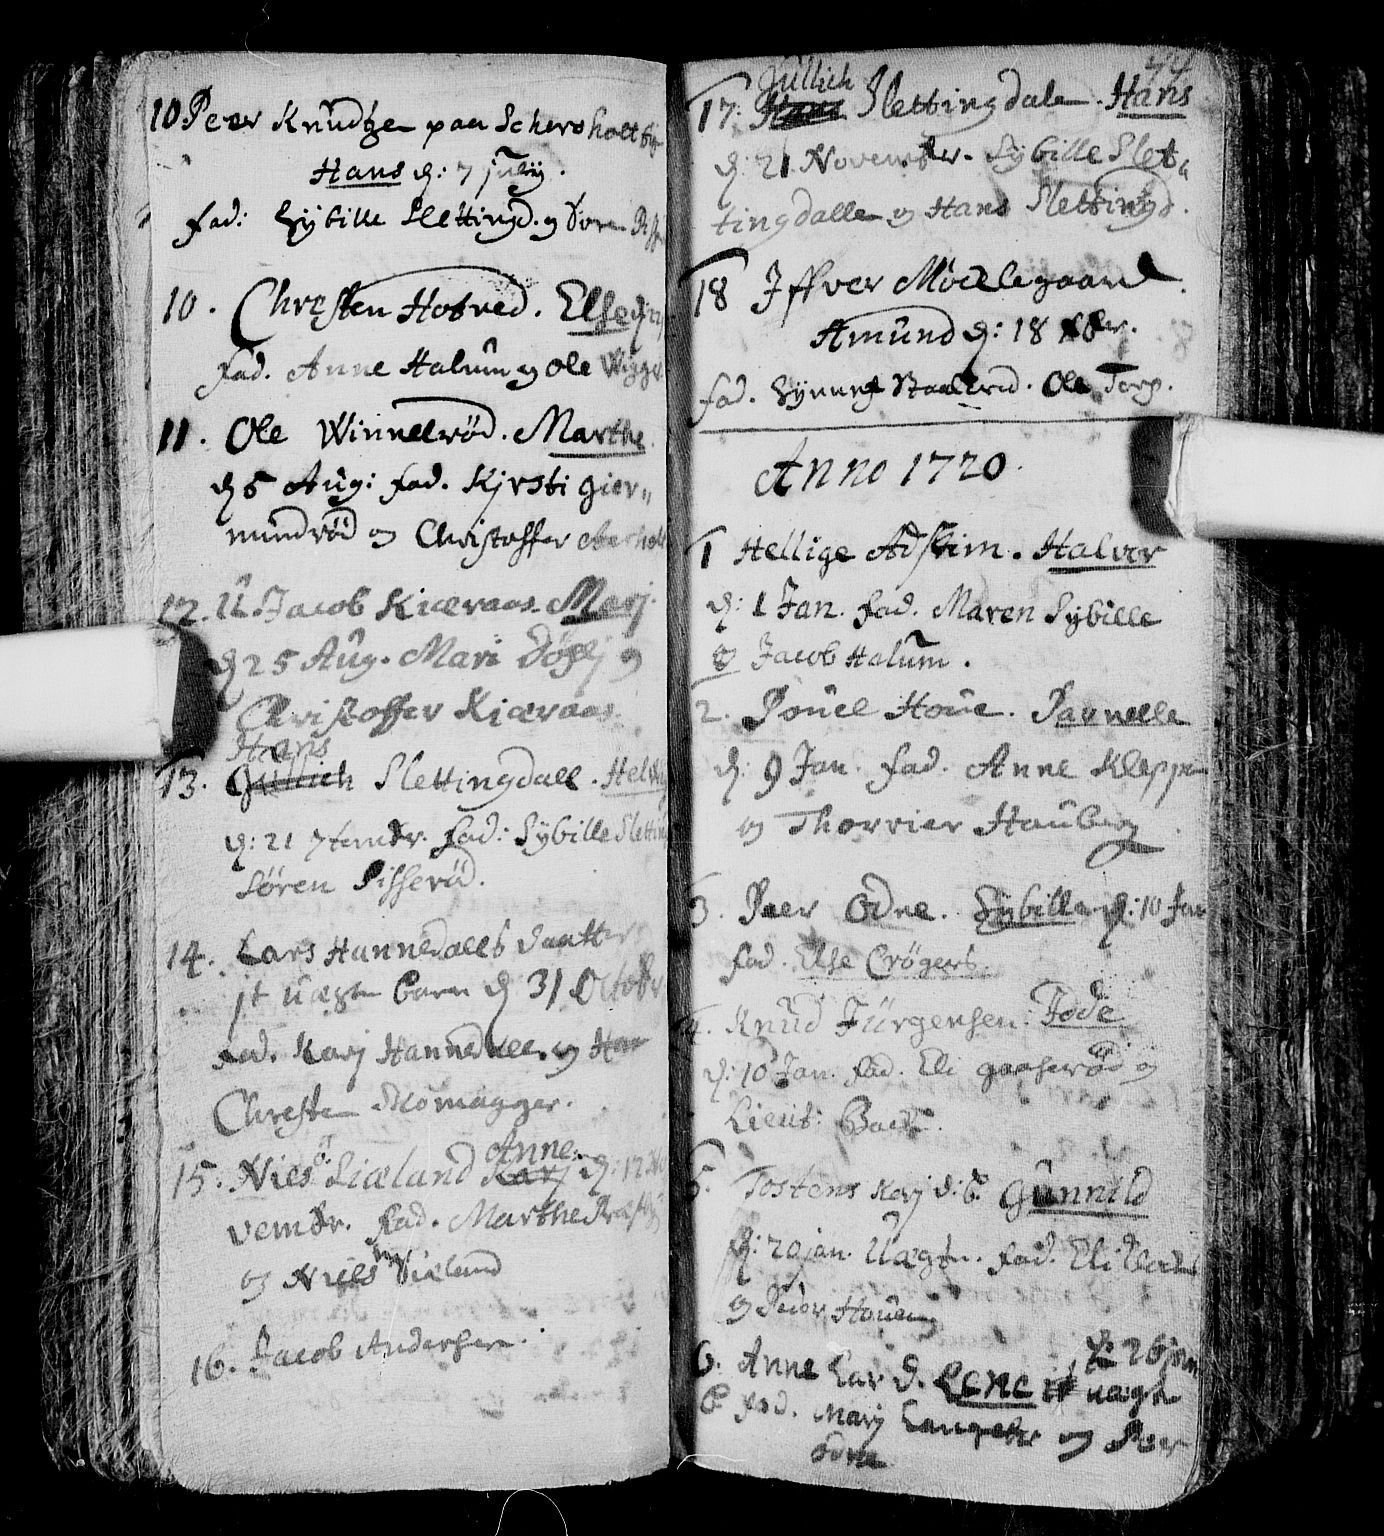 10 Peer Knudtzen paa Scheresholt
Hans d: 7 july.
Fad: Sybille Slettingd. og Søren
10. Chresten Hobved. Else
Fad. Anne Halum og Ole
11. Ole Winnelrød. Marthe
d 5 Aug: Fad. Kjrsti gier„
mundrød og Christoffer
12. U. Jacob Kiæraas. Marj
d 25 Aug. Mari og
Christoffer Kiæraas.
Hans
13. Gullich Slettingdall. Helvig
d: 21 7tembr. Fad: Sybille Sletting
Søren Sisserød.
14. Lars Hannedalls daatters
it uægte barn d 31 Octobr
Fad. Karj Hannedall. og
Chresten Skomagger.
Anne
15. Niels Liæland Karj d: 12 No
vembr. Fad. Marthe
og Niels Viæland
16. Jacob Andersen.
44
Gullich
17. Hans Slettingdale. Hans
d: 21 Novembr. Sybille Slet„
tingdalle og Hans Slettingd.
18 Iffver Mölegaard.
Amund d: 18 Xbr.
Fad. Ole Torp.
Anno 1720.
1 Hellige Halvor
d: 1 Jan. Fad. Maren Sybille
og Jacob Halum.
2. Pouel Houe. Pernelle
d: 9 Jan. Fad. Anne Kleppen
og Thorrier Hauberg
3. Peer Odne. Sybille d: 10 Jan
Fad. Else Crøgers.
4. Knud Jürgensen. Tode
d: 10 Jan. Fad. Eli gaaserød og
Lieut:
5. Tostens Karj d: b. Gunnild
d: 20 jan. Uægte. Fad. Eli
og Peder Houen
6. Anne Lar d. Lene it uægte
d: 26 jan
B Fad. Marj og Peer
Odne